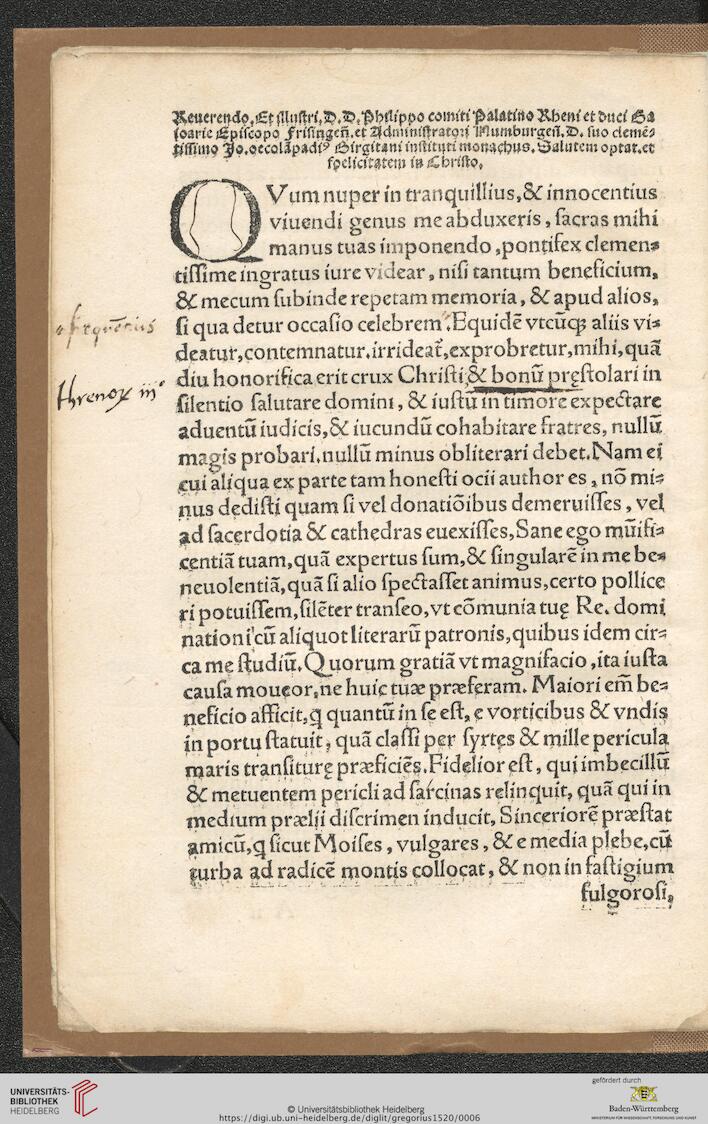 Reuerendo, Et illustri, D. D. Philippo comiti Palatino Rheni et duci Ba
ioarie Episcopo Frisingeñ. et Administratori Numburgeñ. D. suo clemē⸗
tissimo Jo. oecolāpadiꝰ Birgitani instituti monachus. Salutem optat. et
foelicitatem in Christo.
QVum nuper in tranquillius, & innocentius
viuendi genus me abduxeris, sacras mihi
manus tuas imponendo, pontifex clemen⸗
tissime ingratus iure videar, nisi tantum beneficium,
& mecum subinde repetam memoria, & apud alios,
frequētius
si qua detur occasio celebrem. Equidē vtcūq; aliis vi⸗
deatur, contemnatur. irrideat̄, exprobretur, mihi, quā
threnoꝝ iij°
diu honorifica erit crux Christi, & bonū pręstolari in
silentio salutare domini, & iustū in timore expectare
aduentū iudicis, & iucundū cohabitare fratres, nullū
magis probari. nullū minus obliterari debet. Nam ei
cui aliqua ex parte tam honesti ocii author es, nō mi⸗
nus dedisti quam si vel donatiōibus demeruisses, vel
ad sacerdotia & cathedras euexisses, Sane ego mūifi⸗
centiā tuam, quā expertus sum, & singularē in me be⸗
neuolentiā, quā si alio spectasset animus, certo pollice
ri potuissem, silēter transeo, vt cōmunia tuę Re. domi
nationi cū aliquot literarū patronis, quibus idem cir⸗
ca me studiū. Quorum gratiā vt magnifacio, ita iusta
causa moueor, ne huic tuæ præferam. Maiori em̄ be⸗
neficio afficit, q̄ quantū in se est, e vorticibus & vndis
in portu statuit, quā classi per syrtes & mille pericula
maris transiturę præficiēs. Fidelior est, qui imbecillū
& metuentem pericli ad sarcinas relinquit, quā qui in
medium prælii discrimen inducit, Sinceriorē præstat
amicū, q sicut Moises, vulgares, & e media plebe, cū
turba ad radicē montis collocat, & non in fastigium
fulgorosi,
UNIVERSITÄTS-
BIBLIOTHEK
HEIDELBERG
© Universitätsbibliothek Heidelberg
https://digi.ub.uni-heidelberg.de/diglit/gregorius1520/0006
gefördert durch
Baden-Württemberg
MINISTERIUM FÜR WISSENSCHAFT, FORSCHUNG UND KUNST